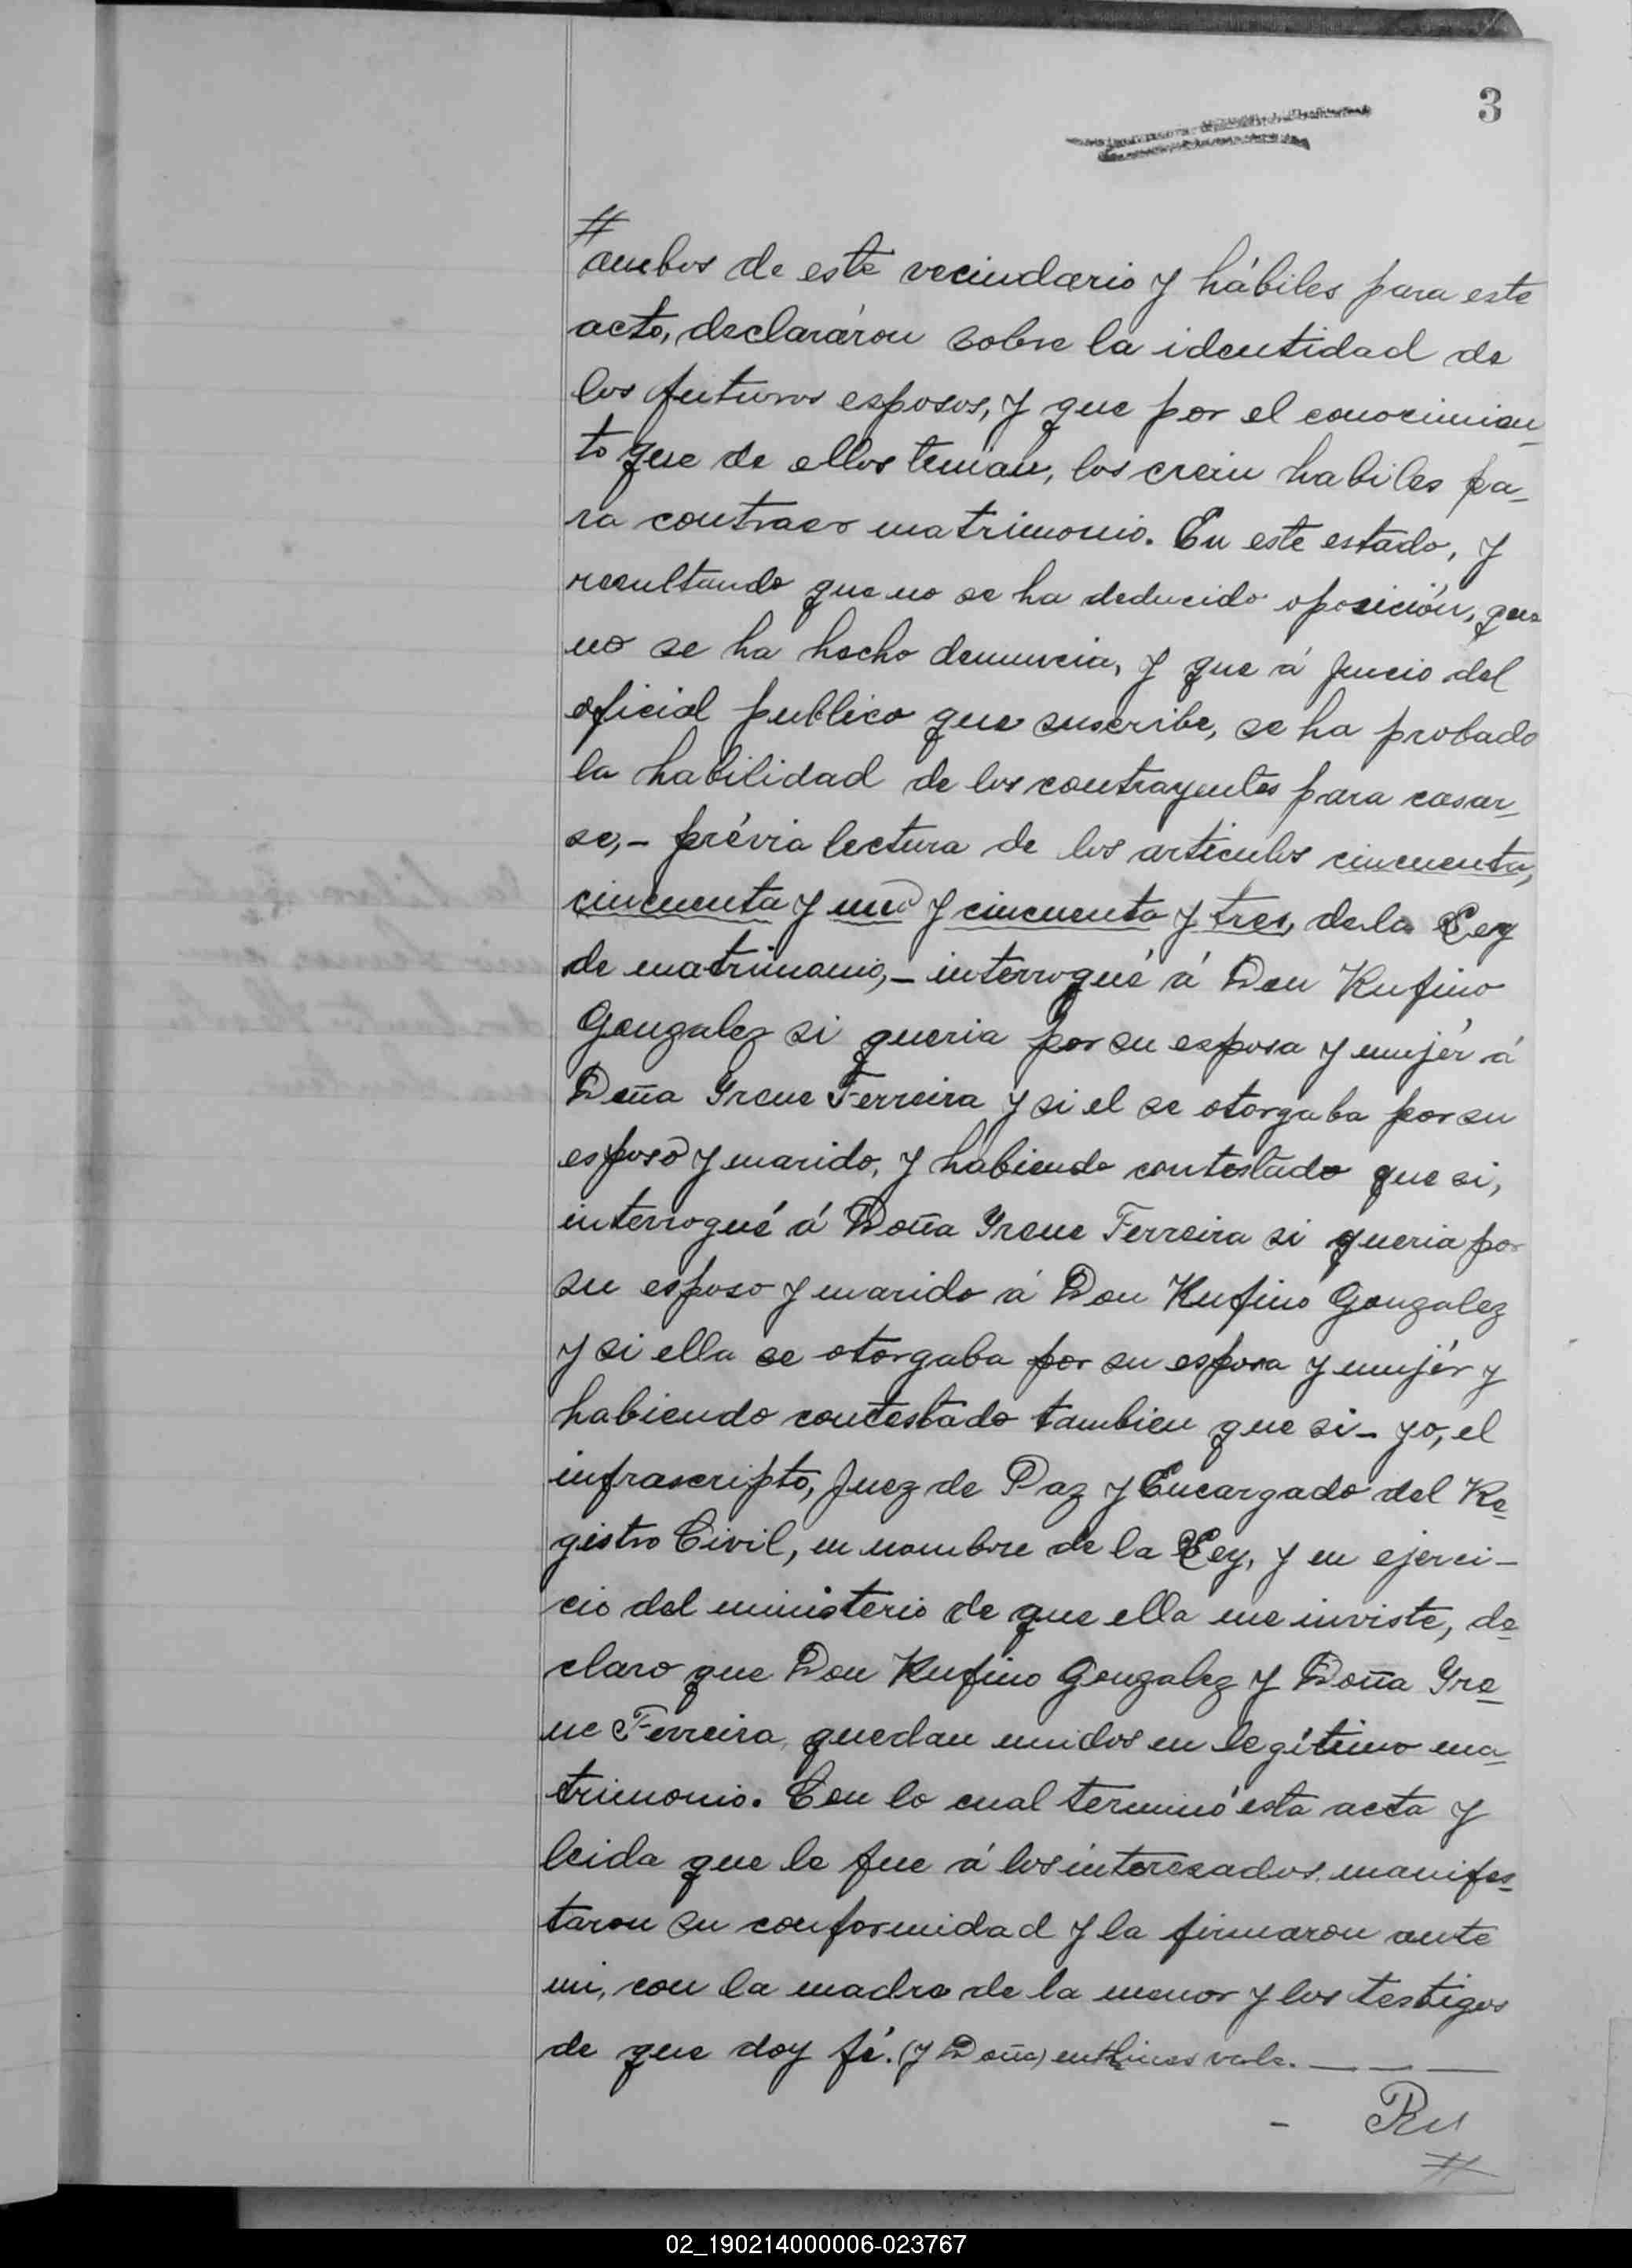 3
#
ambos de este vecindario y hábiles para este
acto, declarárou sobre la identidad de
los futuros esposos, y que por el conocimien_
to que de ellos tenían, los creiu habiles pa_
ra contraer matrimonio. En este estado, y
resultando que no se ha deducido oposición, que
no se ha hecho denuncia, y que á juicio del
oficial publico que suscribe, se ha probado
la habilidad de los contrayentes para casar_
se,- prévia lectura de los artículos cincuenta,
cincuenta y uno y cincuenta y tres, de la Ley
de matrimonio,- interrogué á Don Rufino
Gonzalez si queria por su esposa y mujér á
Doña Yrene Ferreira y si el se otorgaba por su
esposo y marido, y habiendo contestado que si,
interrogué á Doña Yrene Ferreira si queria por
su esposo y marido á Don Rufino Gonzalez
y si ella se otorgaba por su esposa y mujér y
habiendo contestado tambien que si- yo, el
infrascripto, Juez de Paz y Encargado del Re_
gistro Civil, en nombre de la Ley, y en ejerci-
cio del ministerio de que ella me inviste, de_
claro que Don Rufino Gonzalez y Doña Yre_
ne Ferreira, quedan unidos en legítimo ma_
trimonio. Con lo cual terminó esta acta y
leida que le fue á los interesados, manifes_
taron su conformidad y la firmaron ante
mi, con la madre de la menor y los testigos
de que doy fé. (y Doña) entrelineas vale. — — —
- Ru
#
02_190214000006-023767